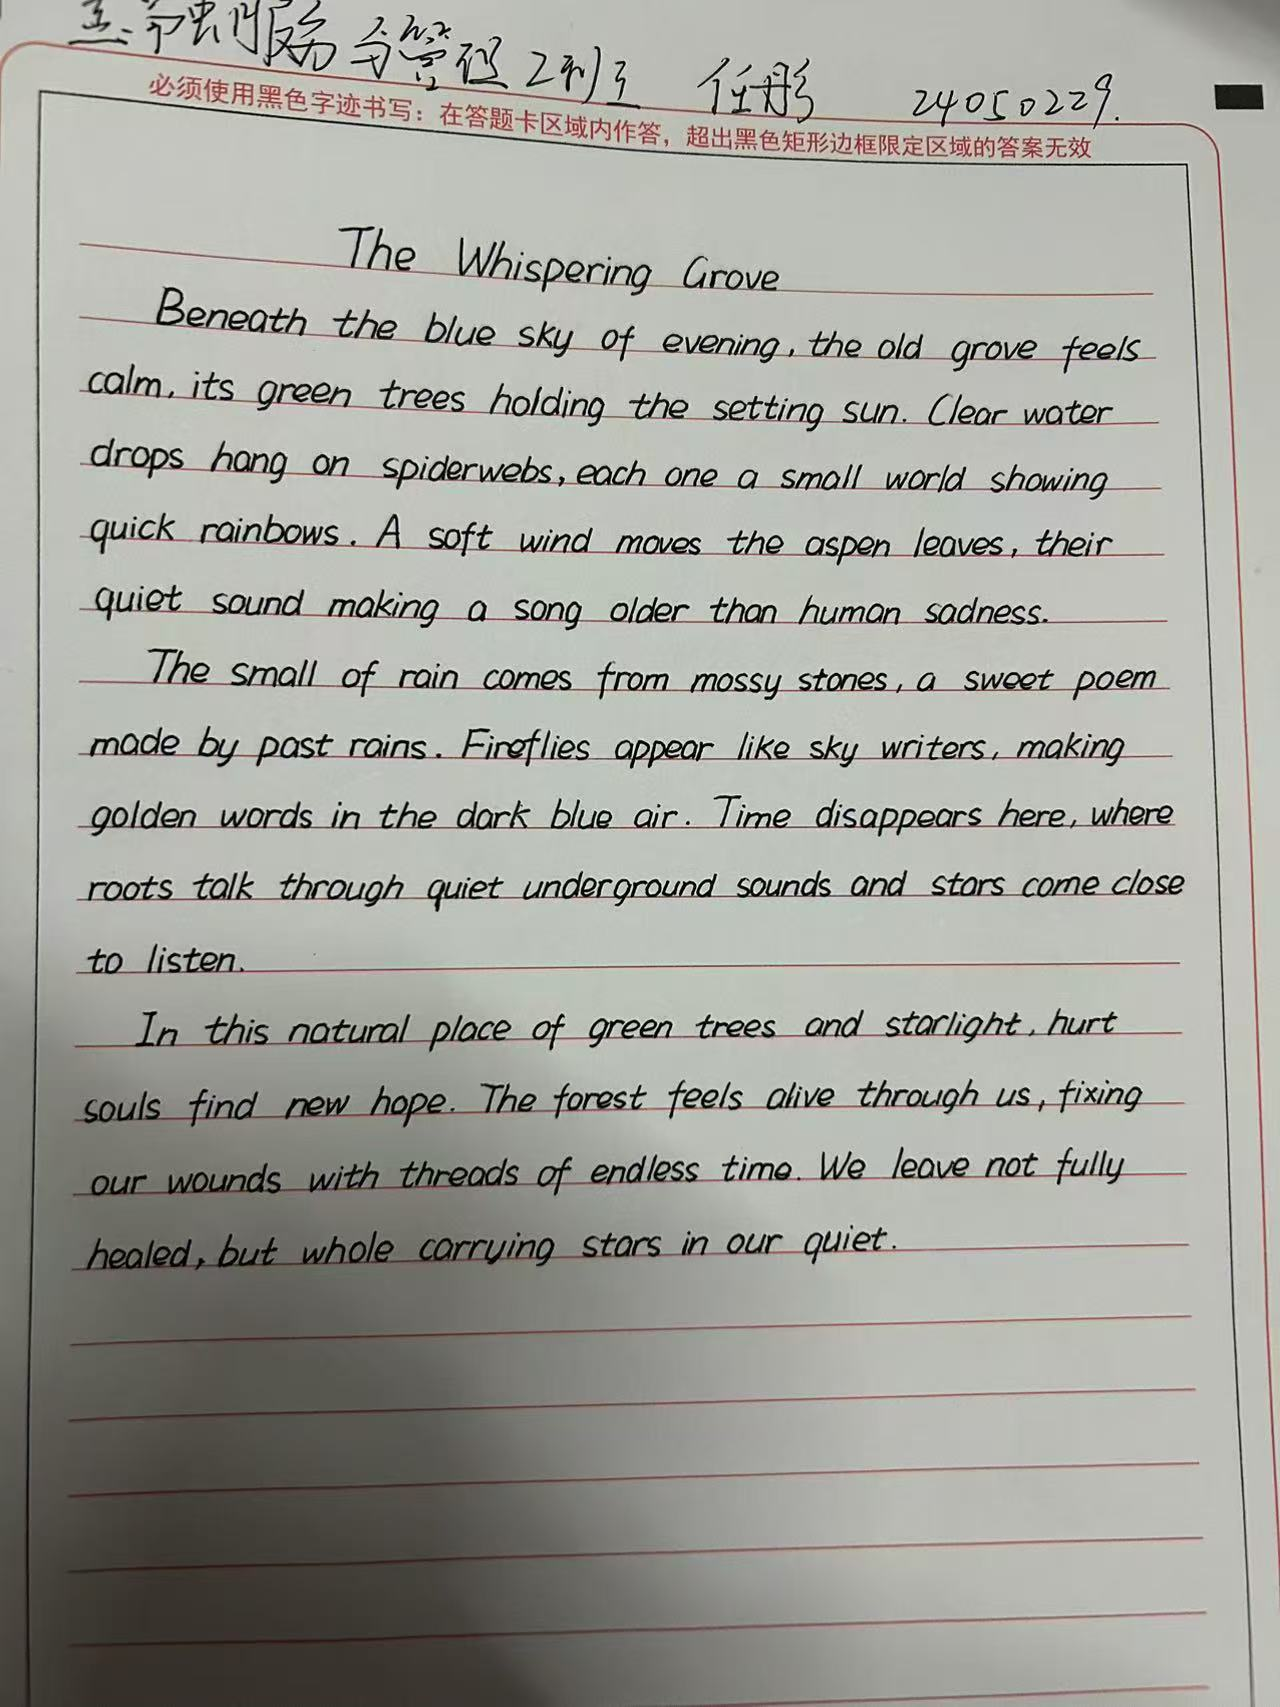 与管理 2 任彤 24050229.
必须使用黑色字迹书写：在答题卡区域内作答，超出黑色矩形边框限定区域的答案无效
The Whispering Grove
Beneath the blue sky of evening, the old grove feels
calm, its green trees holding the setting sun. Clear water
drops hang on spiderwebs, each one a small world showing
quick rainbows. A soft wind moves the aspen leaves, their
quiet sound making a song older than human sadness.
The small of rain comes from mossy stones, a sweet poem
made by past rains. Fireflies appear like sky writers, making
golden words in the dark blue air. Time disappears here, where
roots talk through quiet underground sounds and stars come close
to listen.
In this natural place of green trees and starlight, hurt
souls find new hope. The forest feels alive through us, fixing
our wounds with threads of endless time. We leave not fully
healed, but whole carrying stars in our quiet.